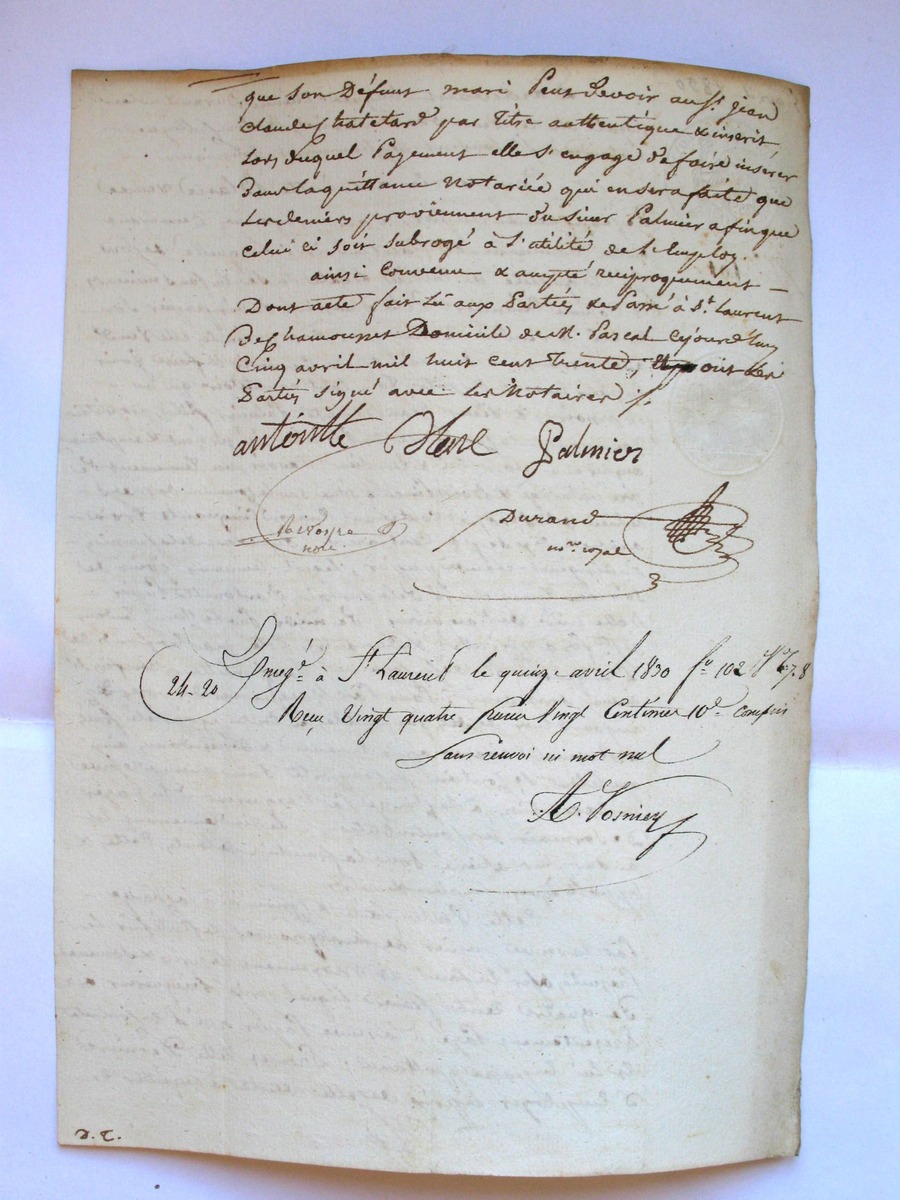 que son Défunt mari Peut Devoir au Sr. jean
claude Chatelard par titre authentique & inscrit
Lors duquel Payement elle s'engage de faire insérer
Dans la quittance Notariée qui en sera faite que
Les deniers proviennent du sieur Palmier afin que
celui ci soit subrogé à l'utilité de l'Emploi.
ainsi convenu & accepté réciproquement —
Dont acte fait Lu aux Parties & Passé à St. Laurent
De Chamousset Domicile de M. Pascal Cejourd'huy
Cinq avril mil huit cent trente, ont les
Parties signé avec les Notaires
Palmier
Durand
nore.
nore. royal
Enregé. à St. Laurent le quinze avril 1830 fo. 102 
24-20
Reçu Vingt quatre francs Vingt Centimes 10e. compris
Sans renvoi ni mot nul
D. C.